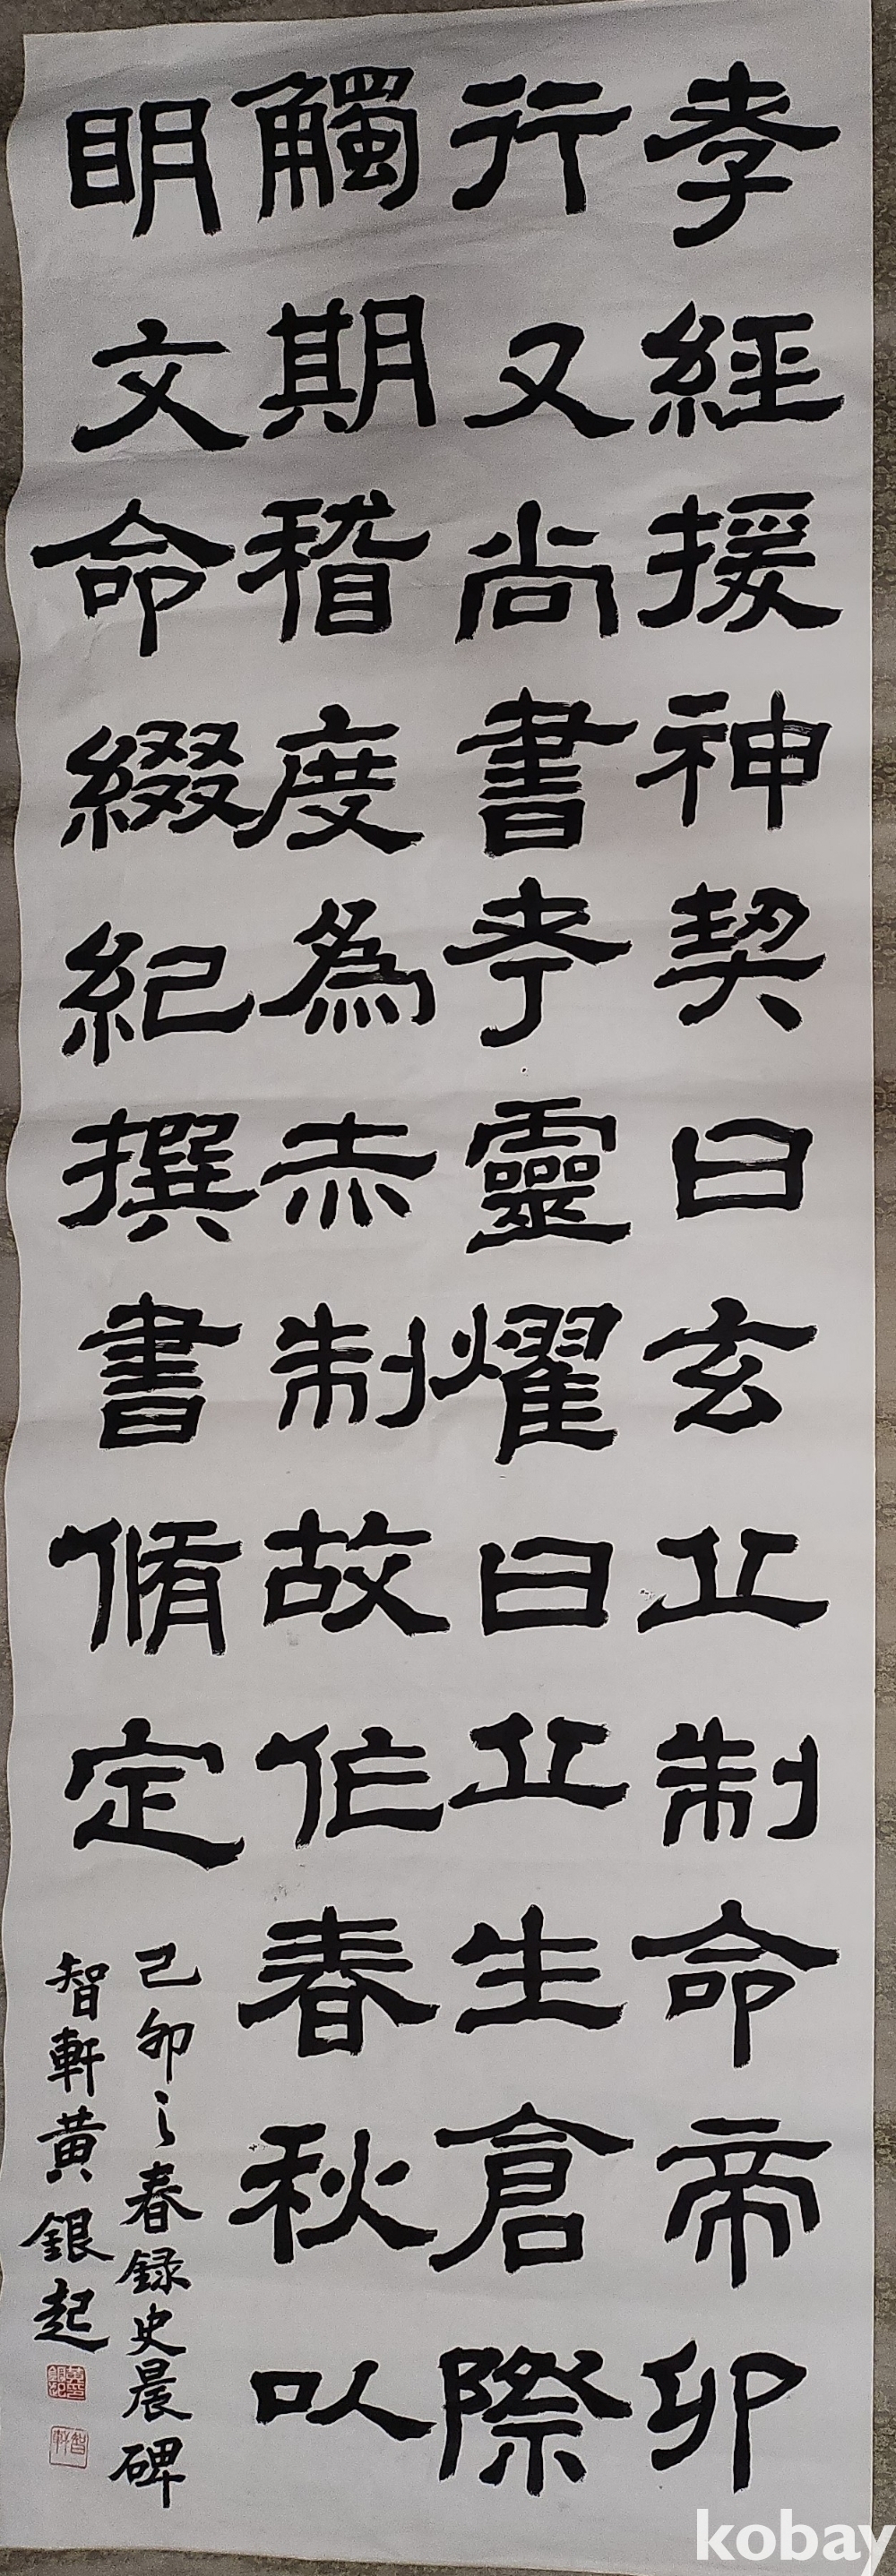 孝經援神契曰玄丘制命帝卯
行又尚書考靈燿曰丘生倉際
觸期稽度為赤制故作春秋以
明文命綴紀撰書脩定
己卯之春録史晨碑
智軒黃銀起
智軒
kobay